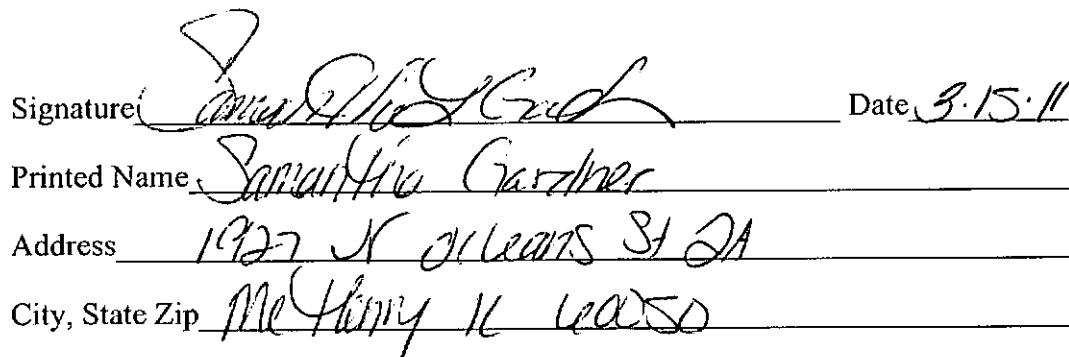 Signature Samantha L Gard Date 3.15.11
Printed Name Samantha Gardner
Address 1927 N Orleans St 2A
City, State Zip McHenry IL 60050